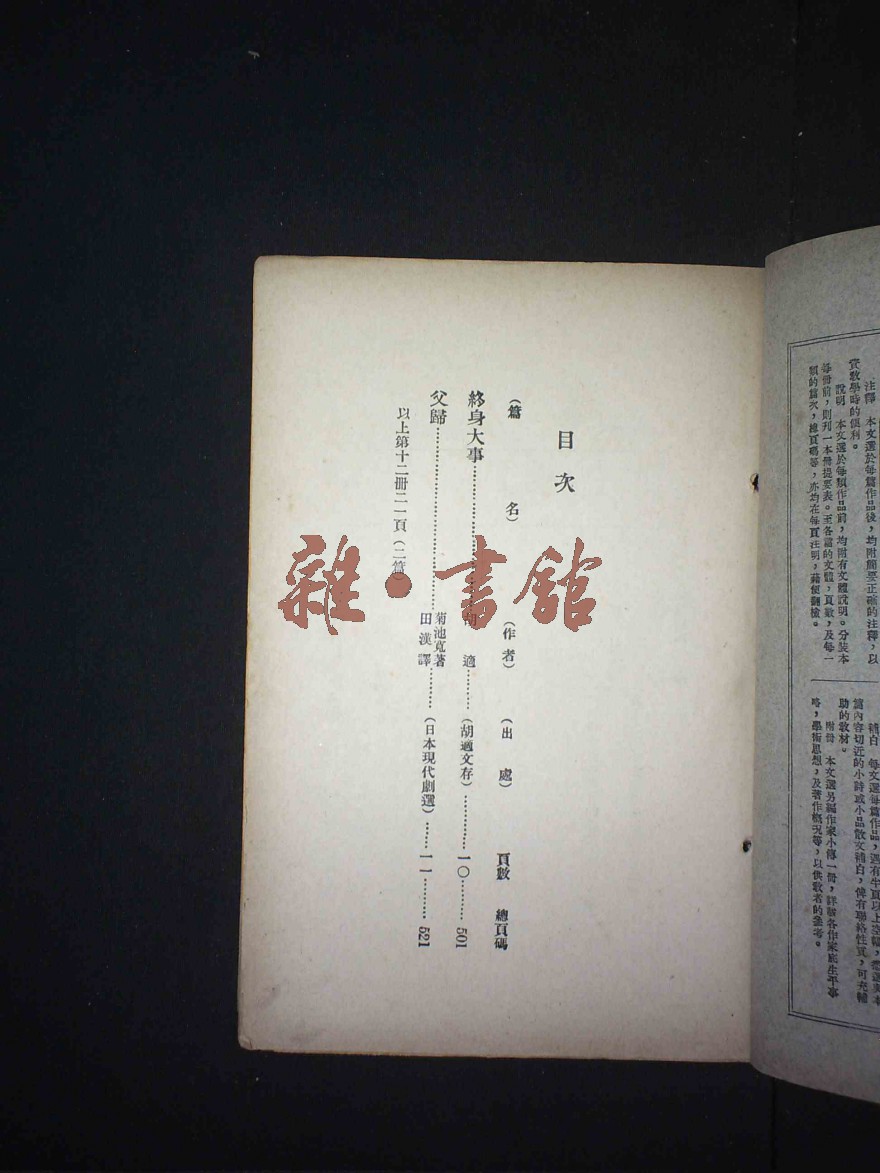 注釋　本文選於每篇作品後，均附簡要正確的注釋，以
實敎學時的便利。
說明　本文選於每類作品前，均附有文體說明。分裝本
每冊前，則列一本冊提要表。至各篇的文體，頁數，及每一
類的篇次，總頁碼等，亦均在每頁注明，藉便翻檢。
補白　每文選每篇作品，遇有半頁以上空幅，
篇內容切近的小詩或小品散文補白，俾有聯絡性質，可充輔
助的敎材。
附冊　本文選另編作家小傳一冊，詳誌各作家底生平事
略，學術思想，及著作概況等，以供敎者的參考。
目次
（篇名）（作者）（出處）頁數 總頁碼
終身大事……胡適……（胡適文存）……一〇……501
父歸……菊池寬著 田漢譯……（日本現代劇選）……一一……521
以上第十二冊二一頁（二篇）
雜·書館